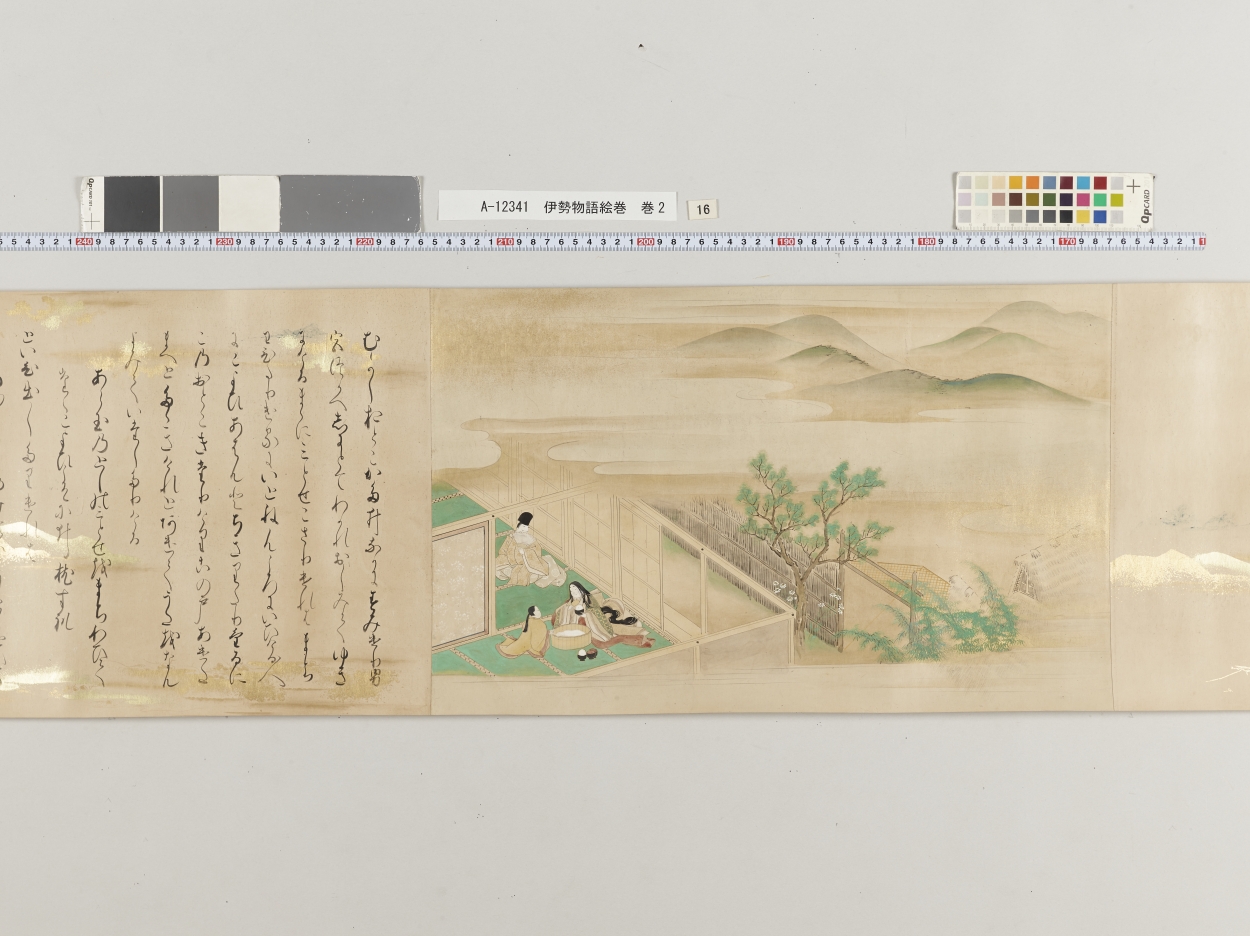 A-12341 伊勢物語絵巻 巻2
16
QPCARD 101
QPCARD
むかしおとこかたゐなかにすみけり男
宮つかへしにとてわかれおしみてゆき
にけるまゝに三とせこさりけれはまち
わひたりけるにいとねんころにいひける人
にこよひあはんとちきりたりけるに
このおとこきたりけりこの戸あけた
まへとたゝきけれとあけてうたをなん
よみていたしたりける
あら玉のとしの三とせをまちわひて
たゝこよひこそにゐ枕すれ
といひ出したりけれは